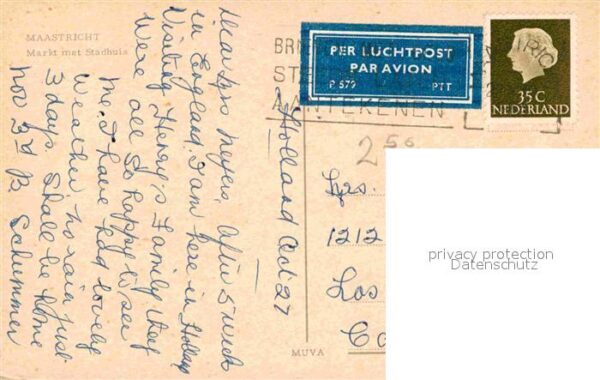 MAASTRICHT
Markt met Stadhuis
Holland Oct 27
Dear Mrs Meyers. After 5 weeks
in England. I am here in Holland
Visiting Henry's Family they
were all so happy to see
me. I have had lovely
Weather no rain just
3 days Shall be home
Nov 3rd B. Schemmer
MUVA
PER LUCHTPOST
PAR AVION
P 579 PTT
AANTEKENEN
35 C
NEDERLAND
250
Mrs.
1212
Los
Ca
privacy protection
Datenschutz